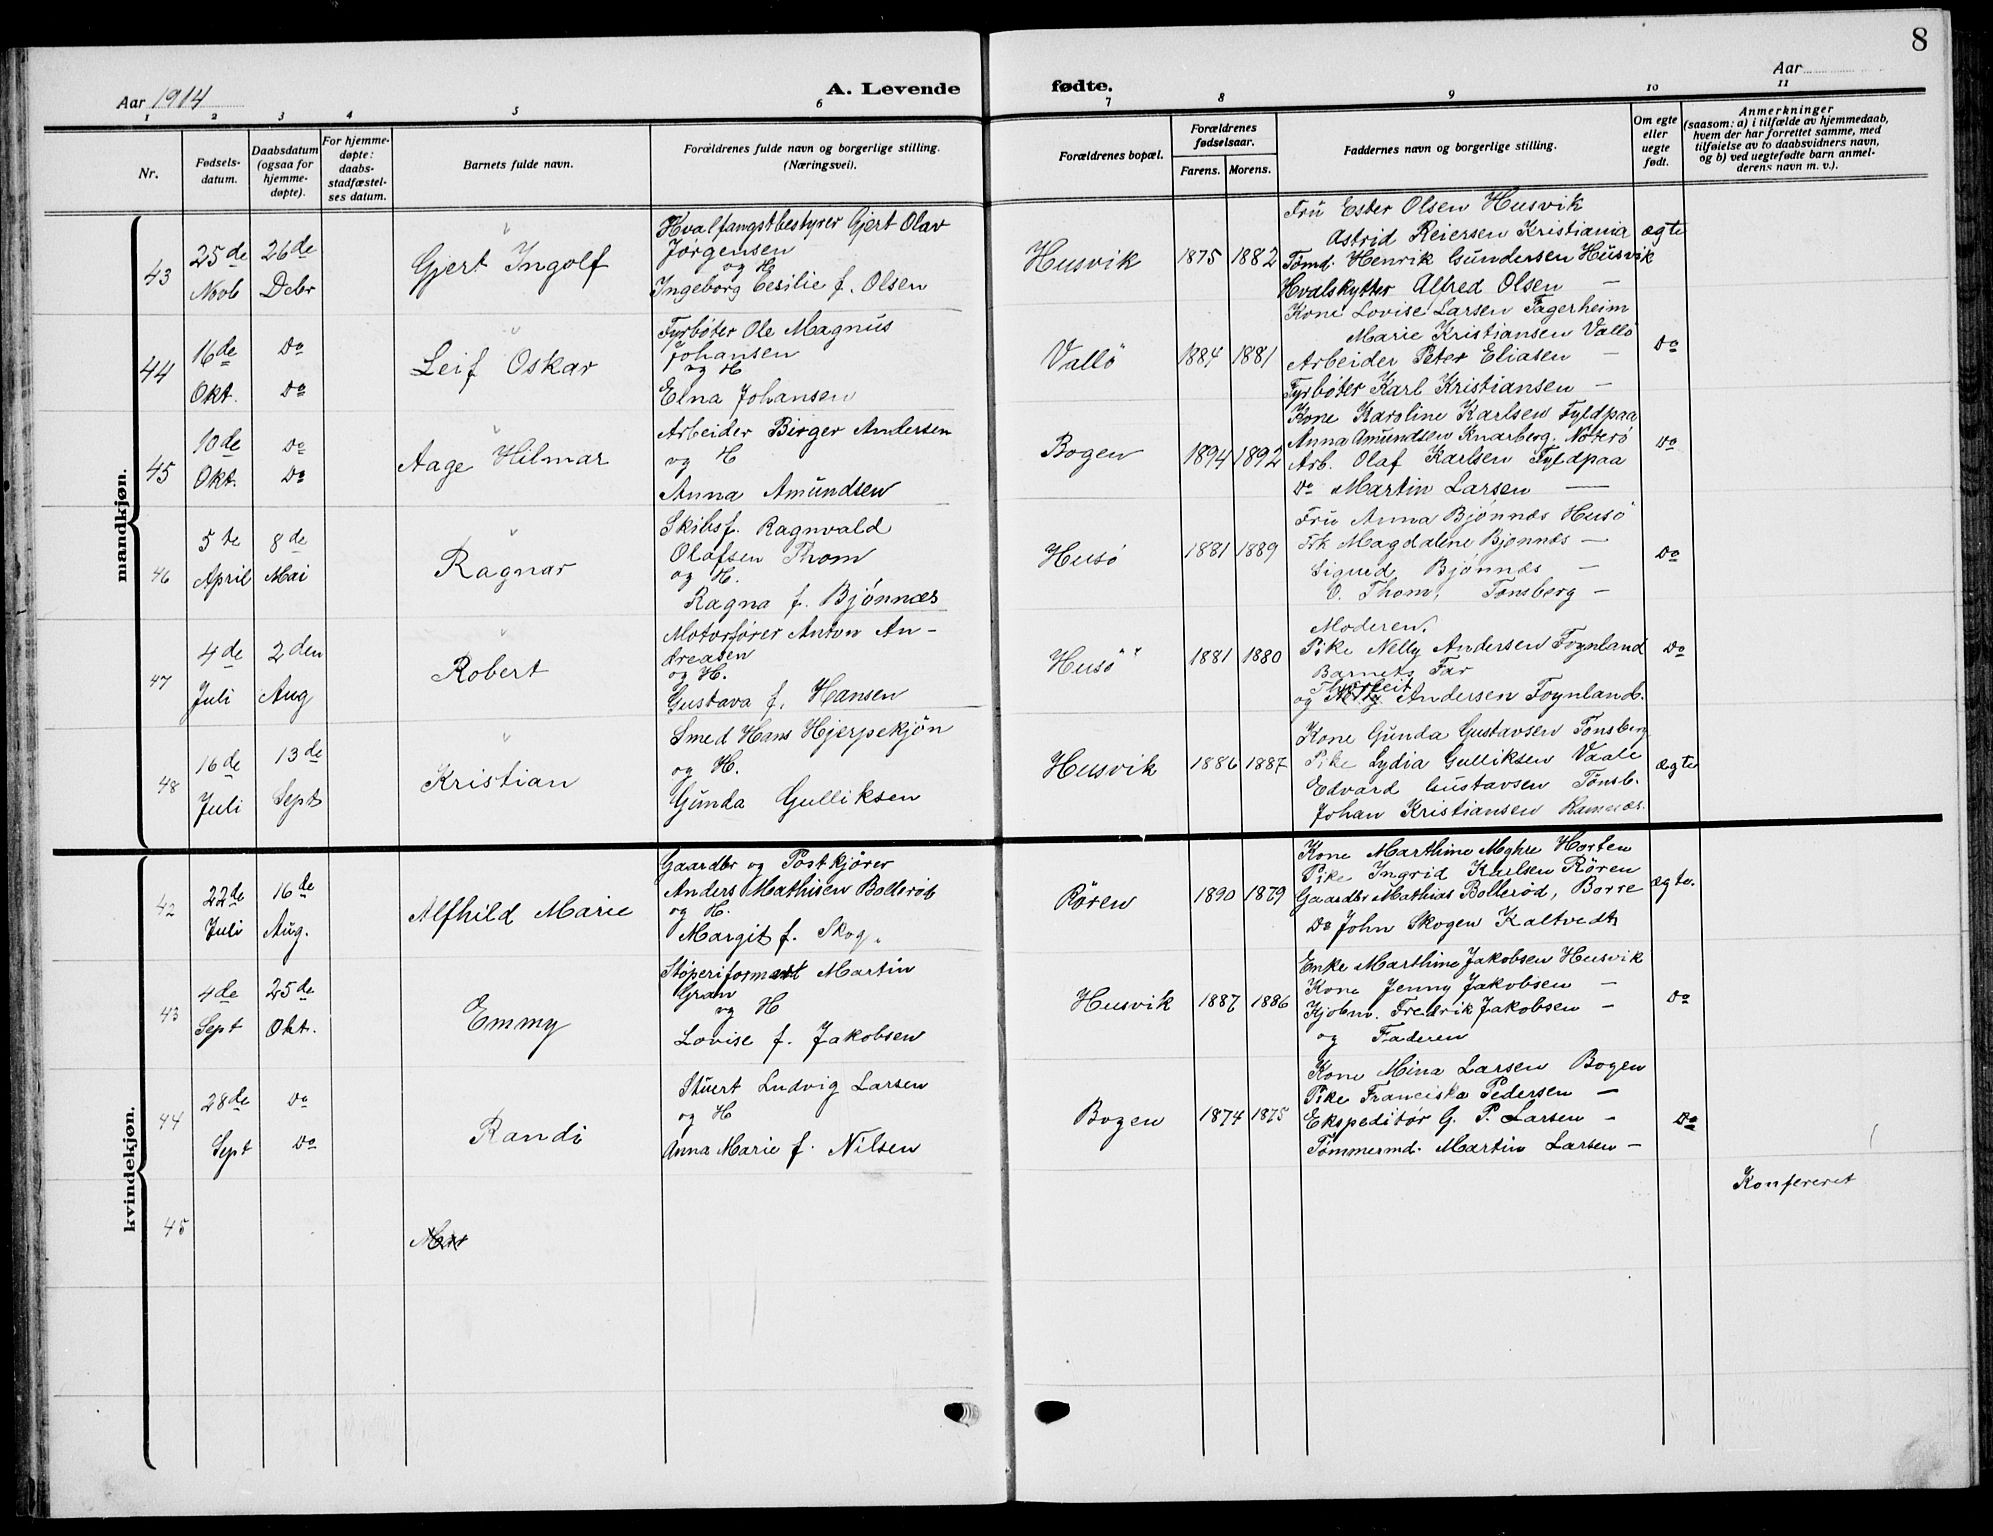 8
Aar 1914
A. Levende fødte.
Aar
1 2 3 4 5 6 7 8 9 10 11
Nr.
Fødsels-
datum.
Daabsdatum
(ogsaa for
hjemme-
døpte).
For hjemme-
døpte:
daabs-
stadfæstel-
ses datum.
Barnets fulde navn.
Forældrenes fulde navn og borgerlige stilling.
(Næringsvei).
Forældrenes bopæl.
Forældrenes
fødselsaar.
Farens. Morens.
Faddernes navn og borgerlige stilling.
Om egte
eller
uegte
født.
Anmerkninger
(saasom: a) i tilfælde av hjemmedaab,
hvem der har forrettet samme, med
tilføielse av to daabsvidners navn,
og b) ved uegtefødte barn anmel-
derens navn m. v.).
mandkjøn.
43
25de
Novb
26de
Debr
"
Gjert Ingolf
Hvalfangstbestyrer Gjert Olav
Jørgensen
og H
Ingeborg Cesilie f. Olsen
Husvik
1875 1882
Fru Ester Olsen Husvik
Astrid Reiersen Kristiania
Tømd. Henrik Gundersen Husvik
Hvalskytter Alfred Olsen —
ægte
44
16de
Okt.
Do
Do
"
Leif Oskar
Fyrbøter Ole Magnus
Johansen
og H
Elna Johansen
Vallö
1884 1881
Kone Lovise Larsen Fagerheim
Marie Kristiansen Vallö
Arbeider Peter Eliasen —
Fyrbøter Karl Kristiansen —
Do
45
10de
Okt.
Do
Do
"
Aage Hilmar
Arbeider Birger Andersen
og H
Anna Amundsen
Bogen
1894 1892
Kone Karoline Karlsen Fyldpaa
Anna Amundsen Knarberg. Nøterö
Arb. Olaf Karlsen Fyldpaa
Do Martin Larsen —
Do
46
5te
April
8de
Mai
"
Ragnar
Skibsf. Ragnvald
Olafsen Thom
og H.
Ragna f. Bjønnæs
Husö
1881 1889
Fru Anna Bjønnæs Husö
Frk Magdalene Bjønnæs —
Sigurd Bjønnæs —
O. Thom, Tønsberg —
Do
47
4de
Juli
2den
Aug
"
Robert
Motorfører Anton An-
dreasen
og H.
Gustava f. Hansen
Husö
1881 1880
Moderen.
Pike Nelly Andersen Foynland
Barnets Far
og Andersen Foynland.
Do
48
16de
Juli
13de
Sept
"
Kristian
Smed Hans Hjerpekjøn
og H.
Gunda Gulliksen
Husvik
1886 1887
Kone Gunda Gustavsen Tönsberg
Pike Lydia Gulliksen Vaale
Edvard Gustavsen Tønsb.
Johan Kristiansen Ramnæs.
ægte
kvindekjøn.
42
22de
Juli
16de
Aug.
Alfhild Marie
Gaardbr og Postkjører
Anders Mathisen Bollerød
og H.
Margit f. Skog.
Røren
1890 1879
Kone Marthine Myhre Horten
Pike Ingrid Karlsen Røren
Gaardbr Mathias Bollerød, Borre
Do John Skogen Kaltvedt
ægte.
43
4de
Sept
25de
Okt.
Emmy
Støperiformand Martin
Gran
og H
Lovise f. Jakobsen
Husvik
1887 1886
Enke Marthine Jakobsen Husvik
Kone Jenny Jakobsen —
Kjøbm. Fredrik Jakobsen —
og Faderen
Do
44
28de
Sept
Do
Do
Randi
Stuert Ludvig Larsen
og H
Anna Marie f. Nilsen
Bogen
1874 1875
Kone Mina Larsen Bogen
Pike Franciska Pedersen —
Ekspeditør G. P. Larsen —
Tømmermd. Martin Larsen —
Do
Konfereret
45